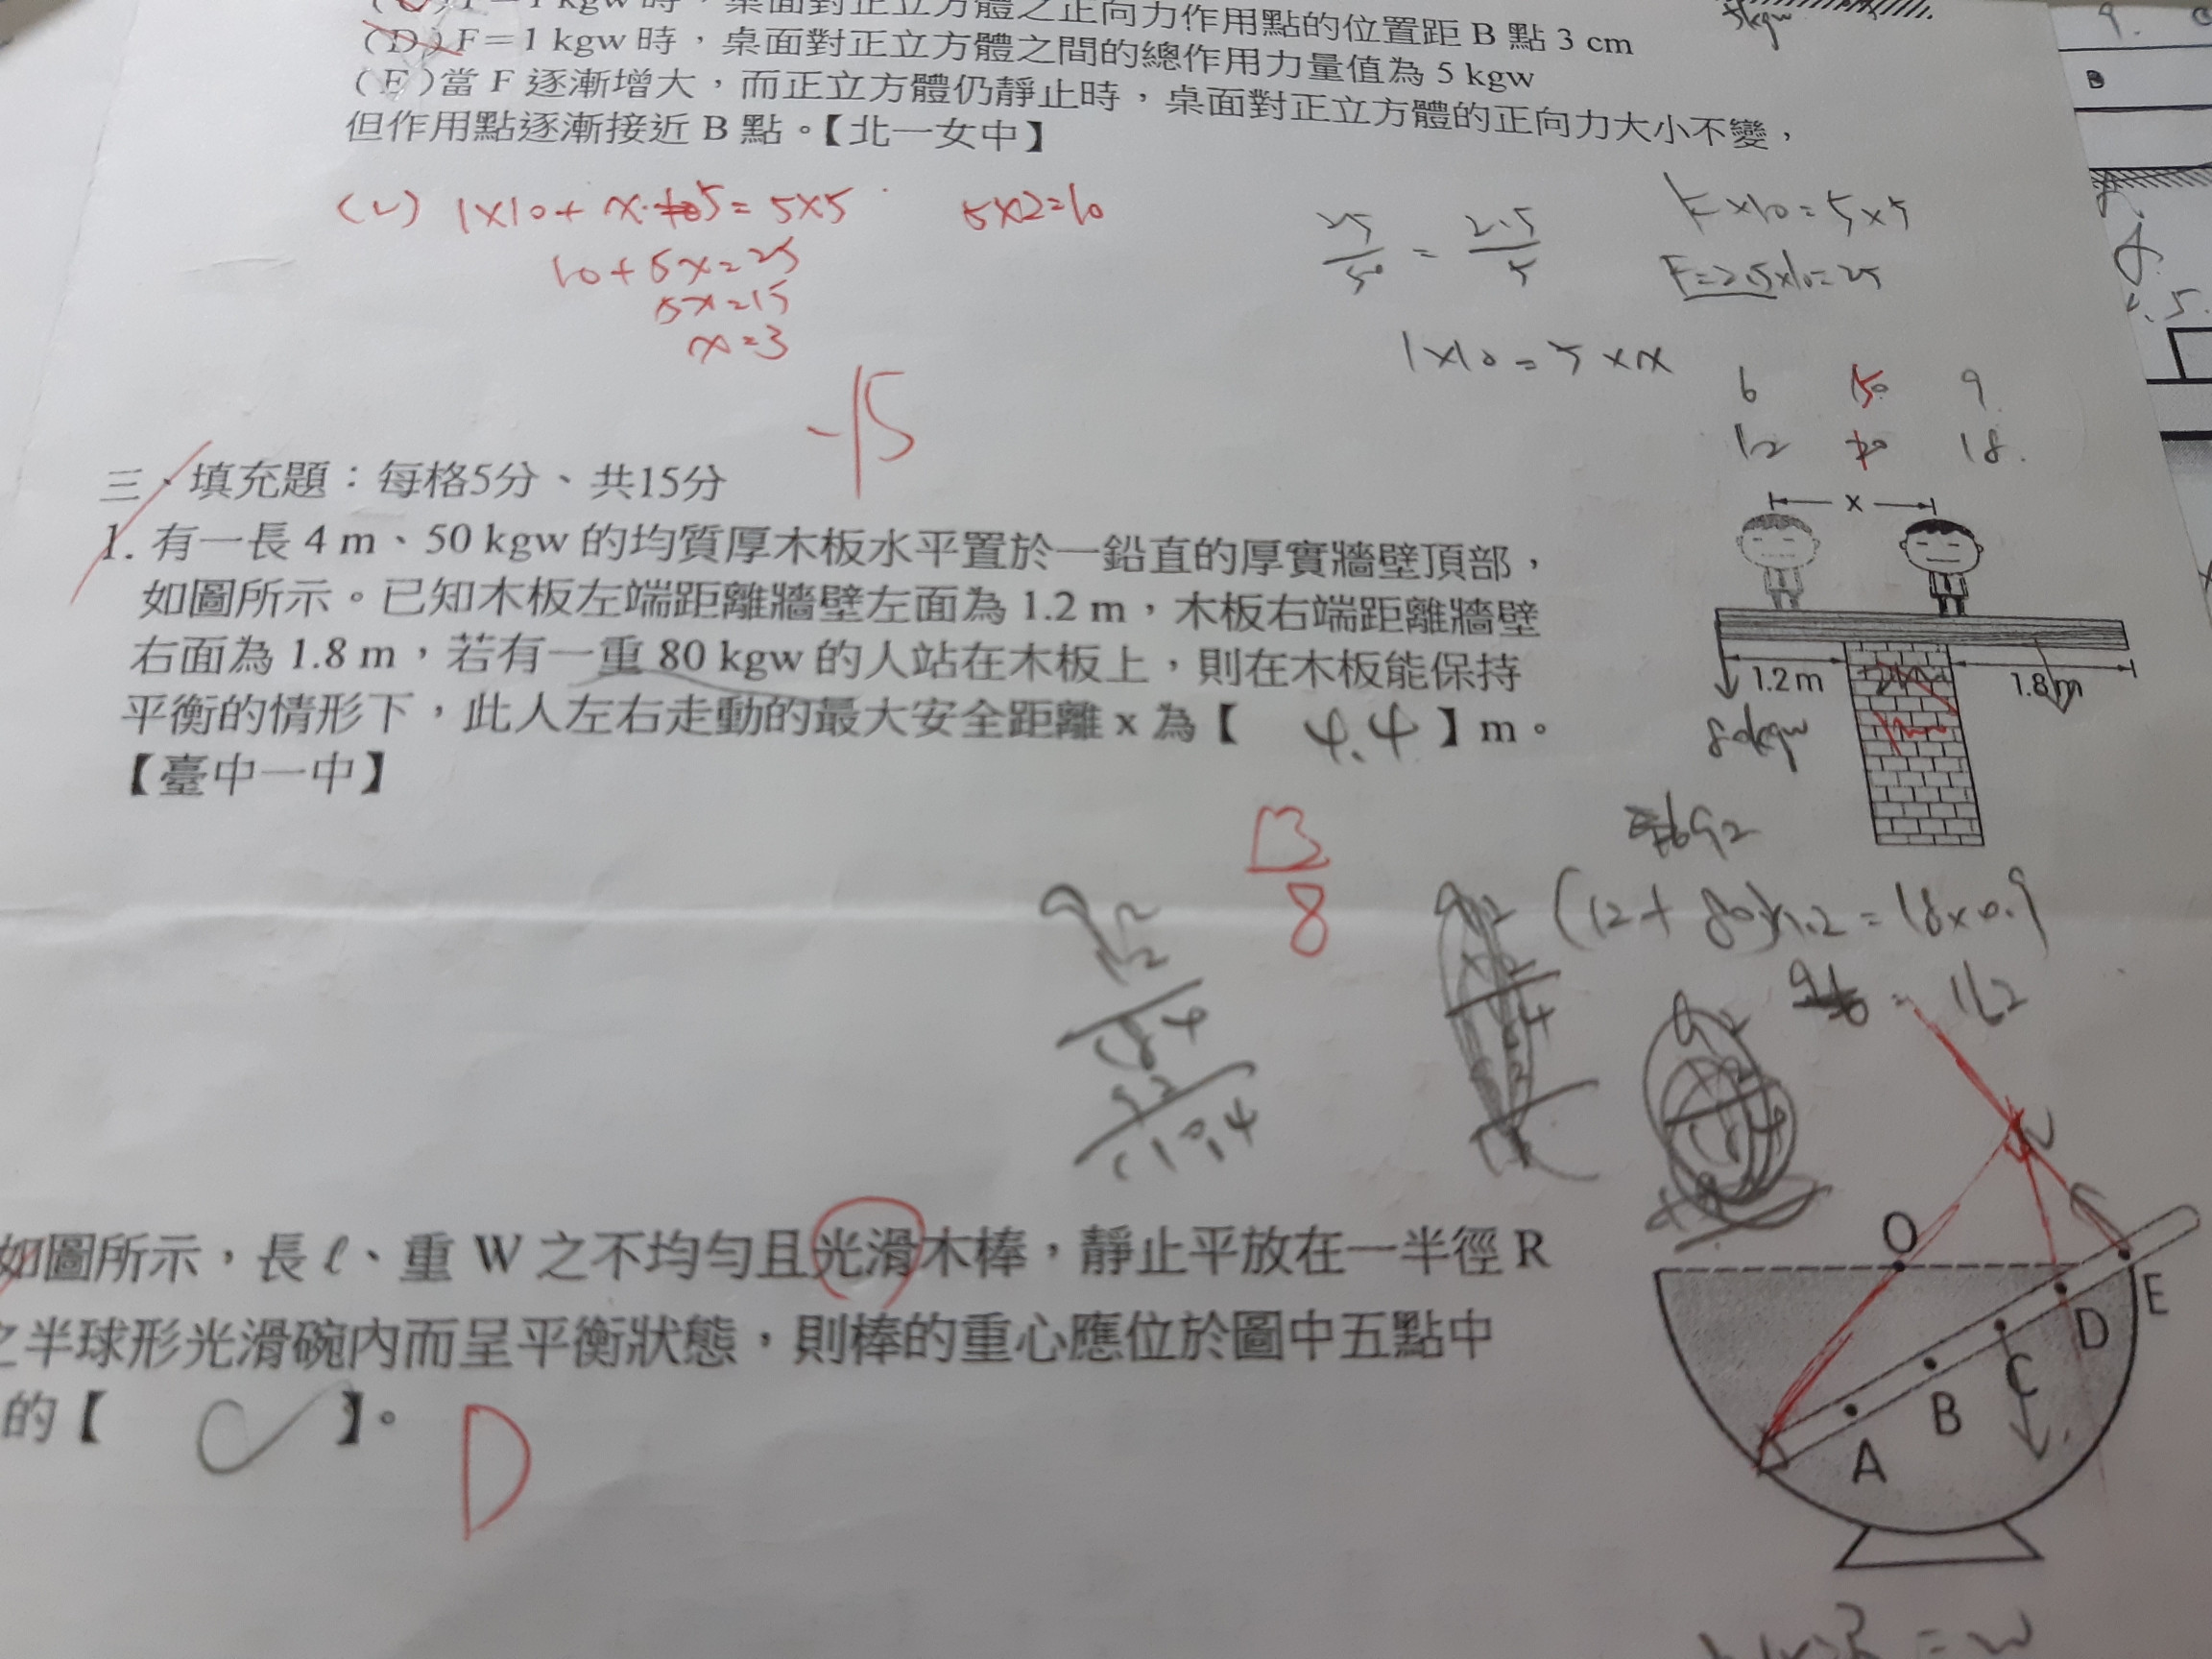 F=1 kgw 時，桌面對正立方體之正向力作用點的位置距 B 點 3 cm
5kgw
(D) F=1 kgw 時，桌面對正立方體之間的總作用力量值為 5 kgw
(E)當 F 逐漸增大，而正立方體仍靜止時，桌面對正立方體的正向力大小不變，
但作用點逐漸接近 B 點。【北一女中】
B
1×10+x·5=5×5
5×2=10
10+5x=25
5x=15
x=3
25/50 = 2.5/5
F×10=5×5
F=2.5×10=25
1×10=5×x
6 50 9
12 18.
-15
三、填充題：每格5分、共15分
x
1. 有一長 4 m、50 kgw 的均質厚木板水平置於一鉛直的厚實牆壁頂部，
如圖所示。已知木板左端距離牆壁左面為 1.2 m，木板右端距離牆壁
右面為 1.8 m，若有一重 80 kgw 的人站在木板上，則在木板能保持
平衡的情形下，此人左右走動的最大安全距離 x 為【 4.4 】m。
【臺中一中】
1.2 m
1.8 m
80kgw
13/8
(12+80)×1.2=18×0.9
= 162
92
1.2
184
92
110.4
如圖所示，長 ℓ、重 W 之不均勻且光滑木棒，靜止平放在一半徑 R
之半球形光滑碗內而呈平衡狀態，則棒的重心應位於圖中五點中
的【 C 】。
D
O
A
B
C
D
E